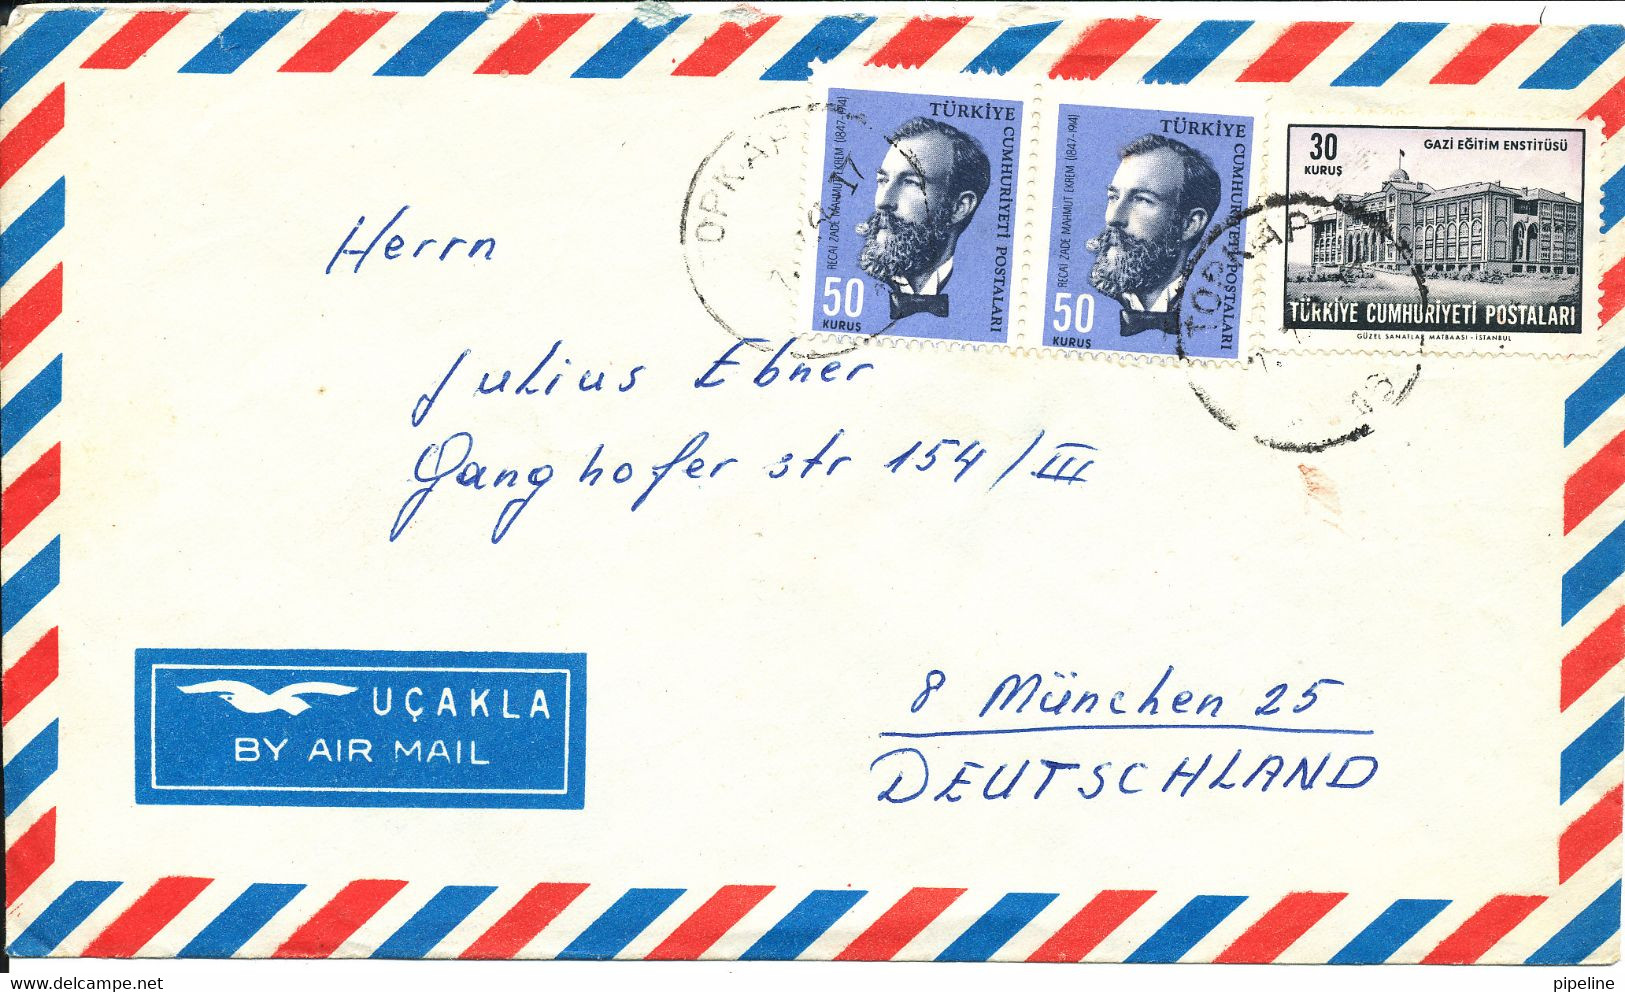 TÜRKİYE
CUMHURİYETİ POSTALARI
RECAİ ZADE MAHMUT EKREM (1847-1914)
50
KURUŞ
TÜRKİYE
CUMHURİYETİ POSTALARI
RECAİ ZADE MAHMUT EKREM (1847-1914)
50
KURUŞ
30
KURUŞ
GAZİ EĞİTİM ENSTİTÜSÜ
TÜRKİYE CUMHURİYETİ POSTALARI
GÜZEL SANATLAR MATBAASI - İSTANBUL
Herrn
Julius Ebner
Ganghofer str 154/III
8 München 25
DEUTSCHLAND
UÇAKLA
BY AIR MAIL
pipeline